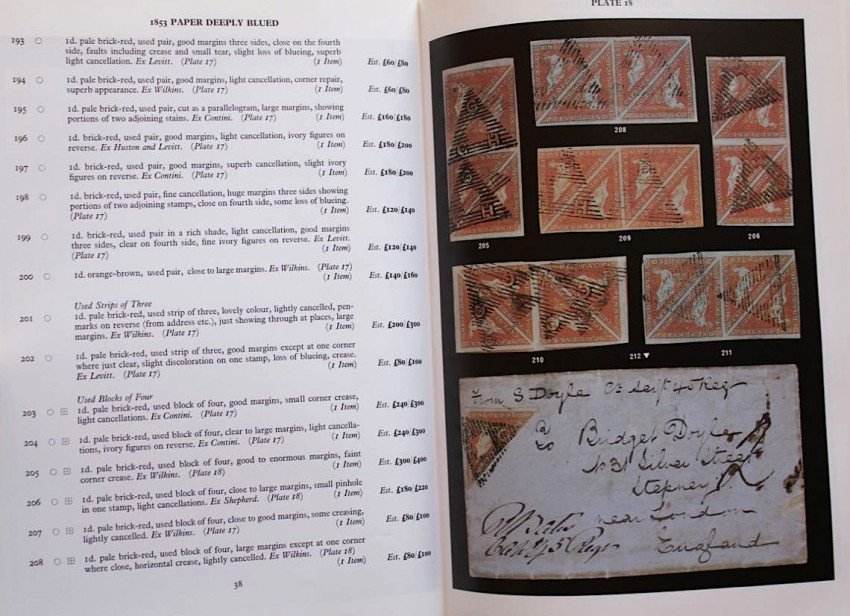 1853 PAPER DEEPLY BLUED
193 1d. pale brick-red, used pair, good margins three sides, close on the fourth
side, faults including crease and small tear, slight loss of blueing, superb
light cancellation. Ex Levitt. (Plate 17) (1 Item) Est. £60/£80
194 1d. pale brick-red, used pair, good margins, light cancellation, corner repair,
superb appearance. Ex Wilkins. (Plate 17) (1 Item) Est. £60/£80
195 1d. pale brick-red, used pair, cut as a parallelogram, large margins, showing
portions of two adjoining stains. Ex Contini. (Plate 17) (1 Item) Est. £160/£180
196 1d. brick-red, used pair, good margins, light cancellation, ivory figures on
reverse. Ex Huston and Levitt. (Plate 17) (1 Item) Est. £180/£200
197 1d. brick-red, used pair, good margins, superb cancellation, slight ivory
figures on reverse. Ex Contini. (Plate 17) (1 Item) Est. £180/£200
198 1d. brick-red, used pair, fine cancellation, huge margins three sides showing
portions of two adjoining stamps, close on fourth side, some loss of blueing.
(Plate 17) (1 Item) Est. £120/£140
199 1d. brick-red, used pair in a rich shade, light cancellation, good margins
three sides, clear on fourth side, fine ivory figures on reverse. Ex Levitt.
(Plate 17) (1 Item) Est. £120/£140
200 1d. orange-brown, used pair, close to large margins. Ex Wilkins. (Plate 17)
(1 Item) Est. £140/£160
Used Strips of Three
201 1d. pale brick-red, used strip of three, lovely colour, lightly cancelled, pen-
marks on reverse (from address etc.), just showing through at places, large
margins. Ex Wilkins. (Plate 17) (1 Item) Est. £200/£300
202 1d. pale brick-red, used strip of three, good margins except at one corner
where just clear, slight discoloration on one stamp, loss of blueing, crease.
Ex Levitt. (Plate 17) (1 Item) Est. £80/£100
Used Blocks of Four
203 1d. pale brick-red, used block of four, good margins, small corner crease,
light cancellations. Ex Contini. (Plate 17) (1 Item) Est. £240/£300
204 1d. pale brick-red, used block of four, clear to large margins, light cancella-
tions, ivory figures on reverse. Ex Contini. (Plate 17) (1 Item) Est. £240/£300
205 1d. pale brick-red, used block of four, good to enormous margins, faint
corner crease. Ex Wilkins. (Plate 18) (1 Item) Est. £300/£400
206 1d. pale brick-red, used block of four, close to large margins, small pinhole
in one stamp, light cancellations. Ex Shepherd. (Plate 18) (1 Item) Est. £180/£220
207 1d. pale brick-red, used block of four, close to good margins, some creasing,
lightly cancelled. Ex Wilkins. (Plate 17) (1 Item) Est. £80/£100
208 1d. pale brick-red, used block of four, large margins except at one corner
where close, horizontal crease, lightly cancelled. Ex Wilkins. (Plate 18)
(1 Item) Est. £80/£100
38
PLATE 18
208
205 209 206
210 212 ▼ 211
From S Doyle
Bridget Doyle
No 31 Silver Street
Stepney
near London
England